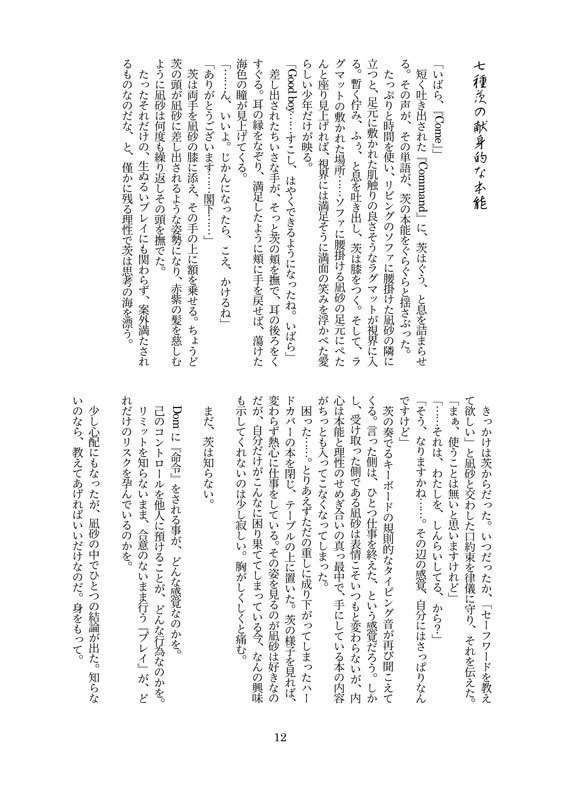 七種茨の献身的な本能
「いばら、『Come』」
短く吐き出された『Command』に、茨はぐう、と息を詰まらせ
る。その声が、その単語が、茨の本能をぐらぐらと揺さぶった。
たっぷりと時間を使い、リビングのソファに腰掛けた凪砂の隣に
立つと、足元に敷かれた肌触りの良さそうなラグマットが視界に入
る。暫く佇み、ふぅ、と息を吐き出し、茨は膝をつく。そして、ラ
グマットの敷かれた場所……ソファに腰掛ける凪砂の足元にぺた
んと座り見上げれば、視界には満足そうに満面の笑みを浮かべた愛
らしい少年だけが映る。
「Good boy……すこし、はやくできるようになったね。いばら」
差し出されたちいさな手が、そっと茨の頬を撫で、耳の後ろをく
すぐる。耳の縁をなぞり、満足したように頬に手を戻せば、蕩けた
海色の瞳が見上げてくる。
「……ん、いいよ。じかんになったら、こえ、かけるね」
「ありがとうございます……閣下……」
茨は両手を凪砂の膝に添え、その手の上に額を乗せる。ちょうど
茨の頭が凪砂に差し出されるような姿勢になり、赤紫の髪を慈しむ
ように凪砂は何度も繰り返しその頭を撫でた。
たったそれだけの、生ぬるいプレイにも関わらず、案外満たされ
るものなのだな、と、僅かに残る理性で茨は思考の海を漂う。
きっかけは茨からだった。いつだったか、「セーフワードを教え
て欲しい」と凪砂と交わした口約束を律儀に守り、それを伝えた。
「まぁ、使うことは無いと思いますけれど」
「……それは、わたしを、しんらいしてる、から？」
「そう、なりますかね……。その辺の感覚、自分にはさっぱりなん
ですけど」
茨の奏でるキーボードの規則的なタイピング音が再び聞こえて
くる。言った側は、ひとつ仕事を終えた、という感覚だろう。しか
し、受け取った側である凪砂は表情こそいつもと変わらないが、内
心は本能と理性のせめぎ合いの真っ最中で、手にしている本の内容
がちっとも入ってこなくなってしまった。
困った……。とりあえずただの重しに成り下がってしまったハー
ドカバーの本を閉じ、テーブルの上に置いた。茨の様子を見れば、
変わらず熱心に仕事をしている。その姿を見るのが凪砂は好きなの
だが、自分だけがこんなに困り果ててしまっている今、なんの興味
も示してくれないのは少し寂しい。胸がしくしくと痛む。
まだ、茨は知らない。
Domに『命令』をされる事が、どんな感覚なのかを。
己のコントロールを他人に預けることが、どんな行為なのかを。
リミットを知らないまま、合意のないまま行う『プレイ』が、ど
れだけのリスクを孕んでいるのかを。
少し心配にもなったが、凪砂の中でひとつの結論が出た。知らな
いのなら、教えてあげればいいだけなのだ。身をもって。
12